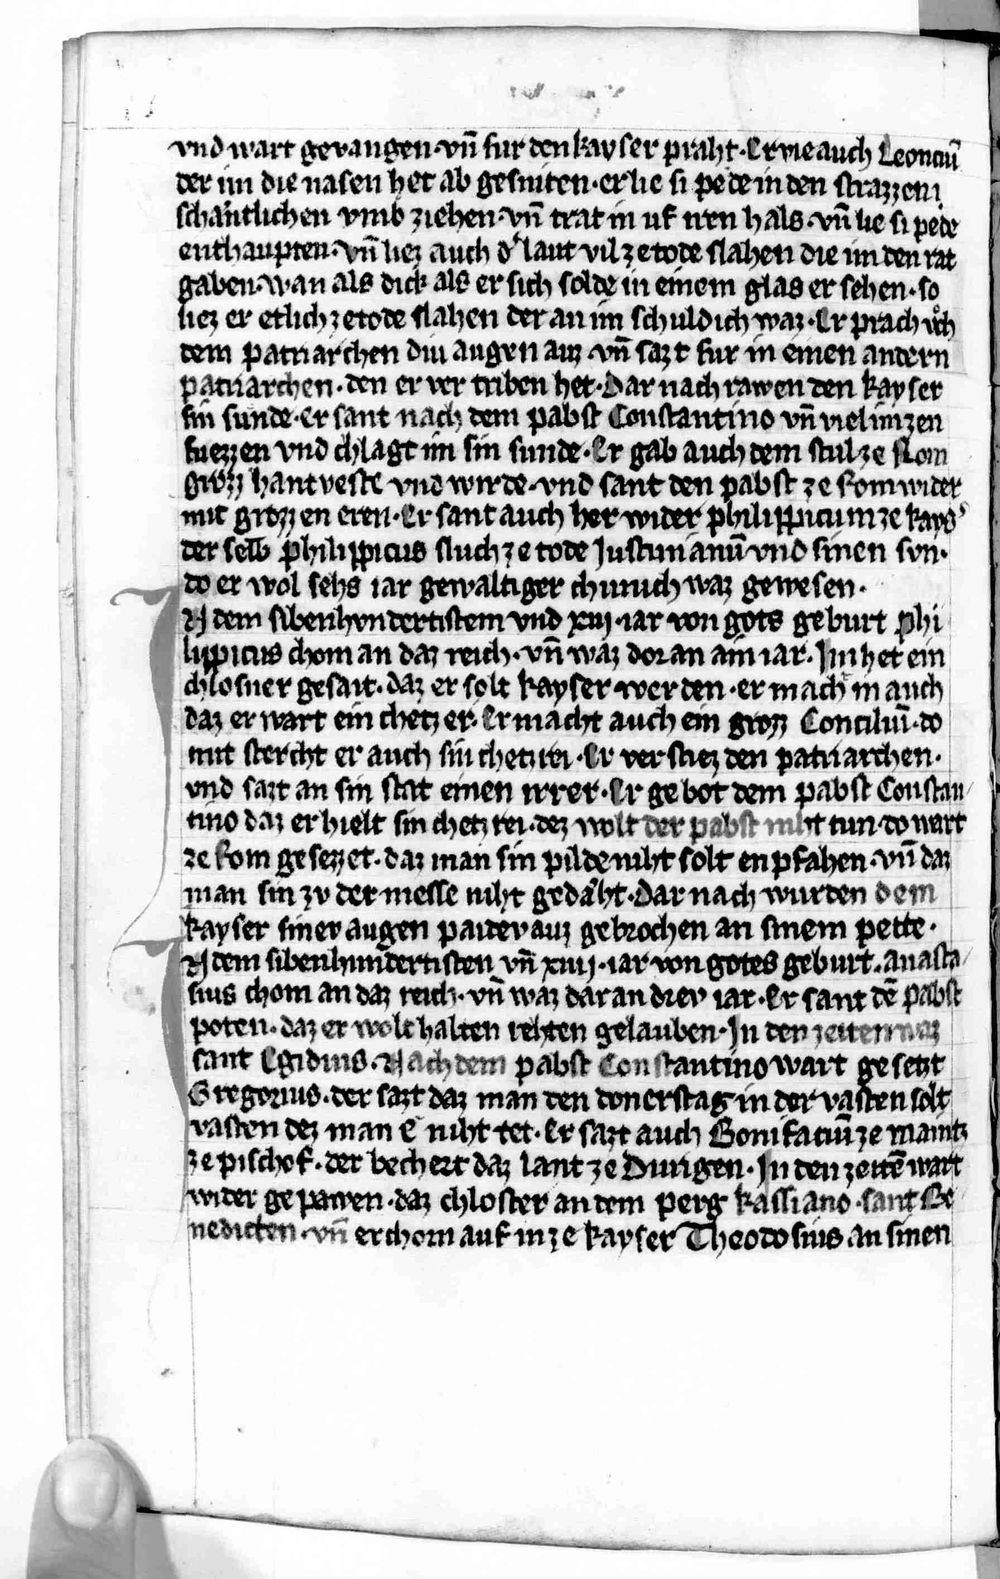 vnd wart gevangen·vn̄ fur den kayser praht·Er vie auch Leonciū
der im die nasen het ab gesniten·er lie si pede in den strazzen
schantlichen vmb ziehen·vn̄ trat in uf iren hals·vn̄ lie si pede
enthaupten·vn̄ liez auch d' laut vil ze tode slahen die im den rat
gaben·wan als dick als er sich solde in einem glas er sehen·so
liez er etlich ze tode slahen der an im schuldich waz·Er prach vͦch
dem patriarchen diu augen auz·vn̄ sazt fur in einen andern
patriarchen·den er ver triben het·Dar nach rawen den kayser
sin sunde·er sant nach dem pabst Constantino vn̄ viel im zen
fuezzen vnd chlagt im sin sunde·Er gab auch dem stul ze Rom
grozz hantveste vnd wirde·vnd sant den pabst ze Rom wider
mit grozzen eren·Er sant auch her wider philippicum ze kays'
der selb philippicus sluch ze tode Justinianū vnd sinen svn·
do er wol sehs iar gewaltiger chunich waz gewesen·
N dem sibenhvndertistem vnd xiij·iar von gots geburt phi
lippicus chom an daz reich·vn̄ waz doran ain iar·Im het ein
chlosner gesait·daz er solt kayser werden·er mach in auch
daz er wart ein chetzer·Er macht auch ein grozz Conciliū·do
mit stercht er auch sin chetzrei·Er verstiez den patriarchen·
vnd sazt an sin stat einen irrer·Er gebot dem pabst Constan/
tino daz er hielt sin chetzrei·dez wolt der pabst niht tun·do wart
ze Rom gesezzet·daz man sin pilde niht solt enpfahen·vn̄ daz
man sin zv der messe niht gedaht·Dar nach wurden dem
kayser siner augen paider auz gebrochen an sinem pette·
N dem sibenhundertisten vn̄ xiiij·iar von gotes geburt·anasta/
sius chom an daz reich·vn̄ waz dar an drev iar·Er sant dē pabst
poten·daz er wolt halten rehten gelauben·In den zeiten waz
sant Egidius·Nach dem pabst Constantino wart gesetzt
Gregorius·der sazt daz man den donerstag in der vasten solt
vasten dez man e niht tet·Er sazt auch Bonifaciū ze maintz
ze pischof·der bechert daz lant ze Duringen·In den zeitē wart
wider gepawen·daz chloster an dem perg kassiano·sant Be/
nedicten·vn̄ er chom auf in ze kayser Theodosius an sinen